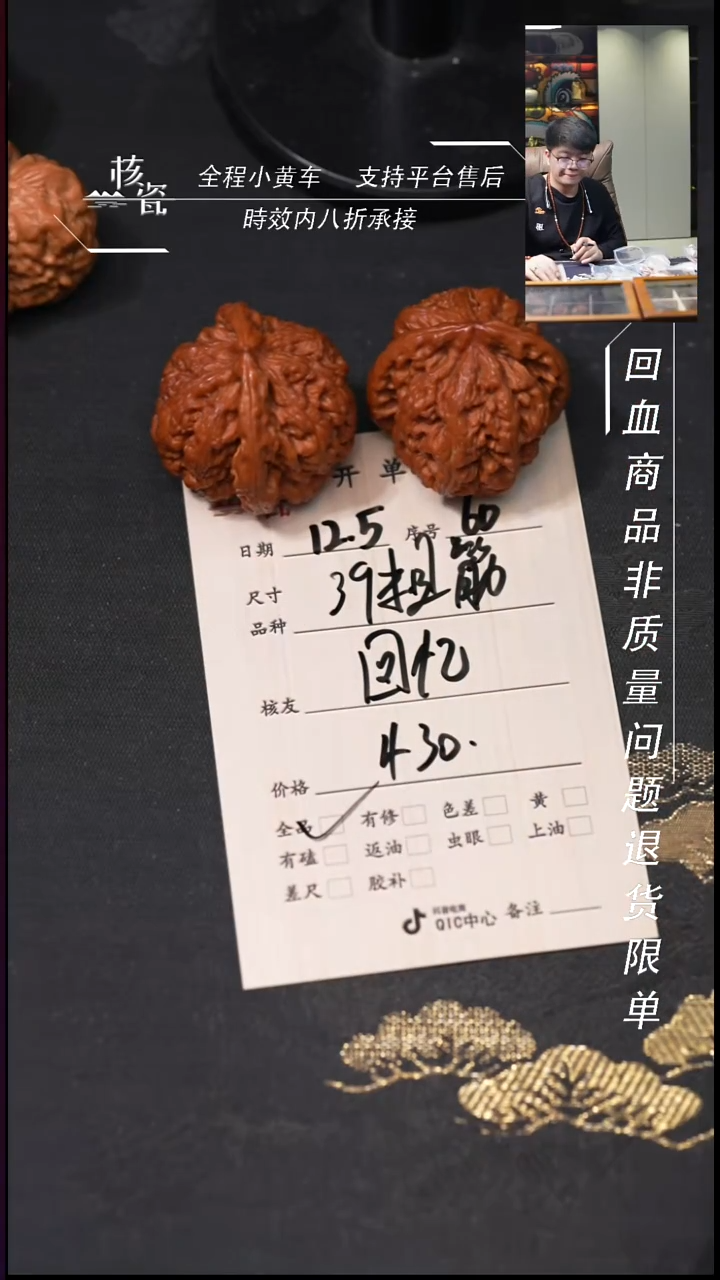 核瓷
全程小黄车 支持平台售后
時效内八折承接
回血商品非质量问题退货限单
开单
日期 12.5 序号 60
尺寸 39粗筋
品种
回忆
核友
430.
价格
全品 有修 色差 黄
有磕 返油 虫眼 上油
差尺 胶补
抖音电商
QIC中心 备注